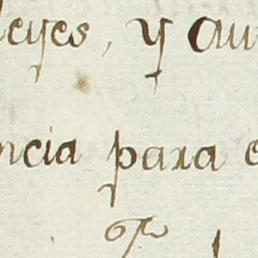 leyes, y au
ncia para e